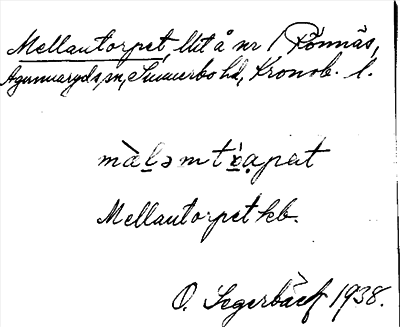 Mellantorpet, Ut å nr 1 Rönnäs,
Agunnaryds sn, Sunnerbo hd, Kronob. l.
Mellantorpet kb.
O. Segerbäck 1938.